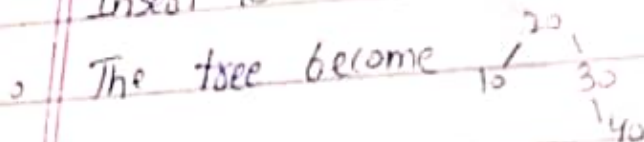 The tree become
20
10 30
40